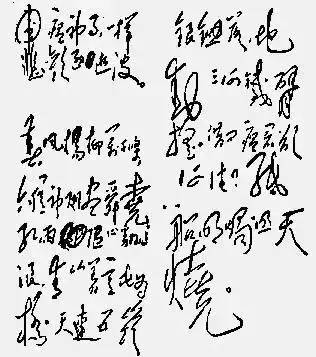 问瘟神事,一样
悲欢逐逝波。
春风杨柳万千条
六亿神州尽舜尧
红雨随心翻作
浪,青山着意化为
桥 天连五岭
银锄落,地
动三河铁臂
摇。借问瘟君欲
何往?纸
船明烛照天
烧。